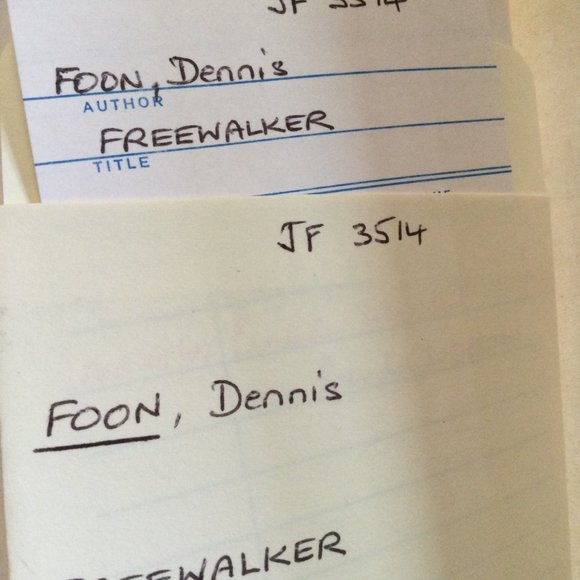 JF 3514
FOON, Dennis
AUTHOR
FREEWALKER
TITLE
JF 3514
FOON, Dennis
FREEWALKER